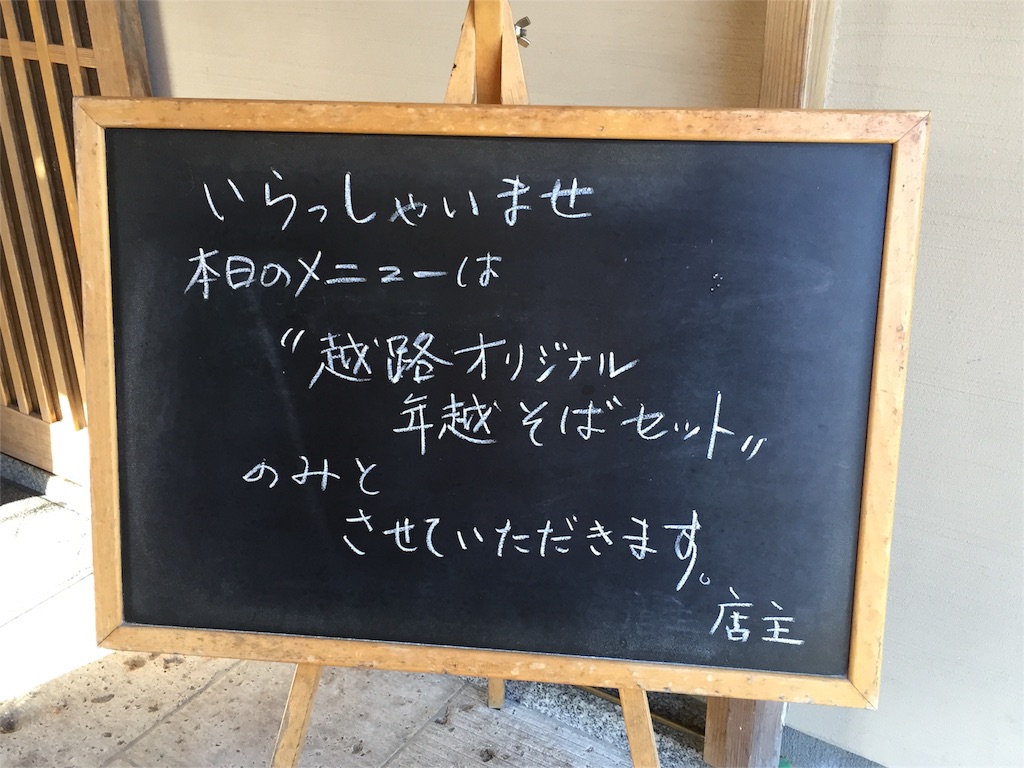 いらっしゃいませ
本日のメニューは
〝越路オリジナル
年越そばセット〟
のみと
させていただきます。
店主